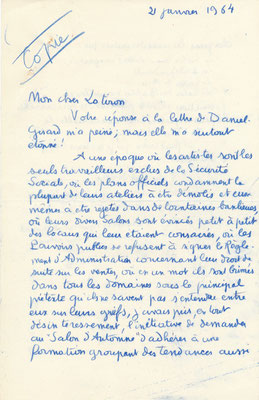 21 janvier 1964
Copie
Mon cher Lotiron
Votre réponse à la lettre de Daniel-
Guard m'a peiné; mais elle m'a surtout
étonné!
A une époque où les artistes sont les
seuls travailleurs exclus de la Sécurité
Sociale, où les plans officiels condamnent la
plupart de leurs ateliers à être démolis et eux
mêmes à être rejetés dans de lointaines banlieues,
où leurs divers Salons sont évincés petit à petit
des locaux qui leur étaient consacrés, où les
Pouvoirs publics se refusent à signer le Règle-
ment d'Administration concernant leur droit de
suite sur les ventes, où en un mot ils sont brimés
dans tous les domaines sous le principal
prétexte qu'ils ne savent pas s'entendre entre
eux sur leurs griefs, j'avais pris, en tout
désintéressement, l'initiative de demander
au "Salon d'Automne" d'adhérer à une
formation groupant des tendances aussi